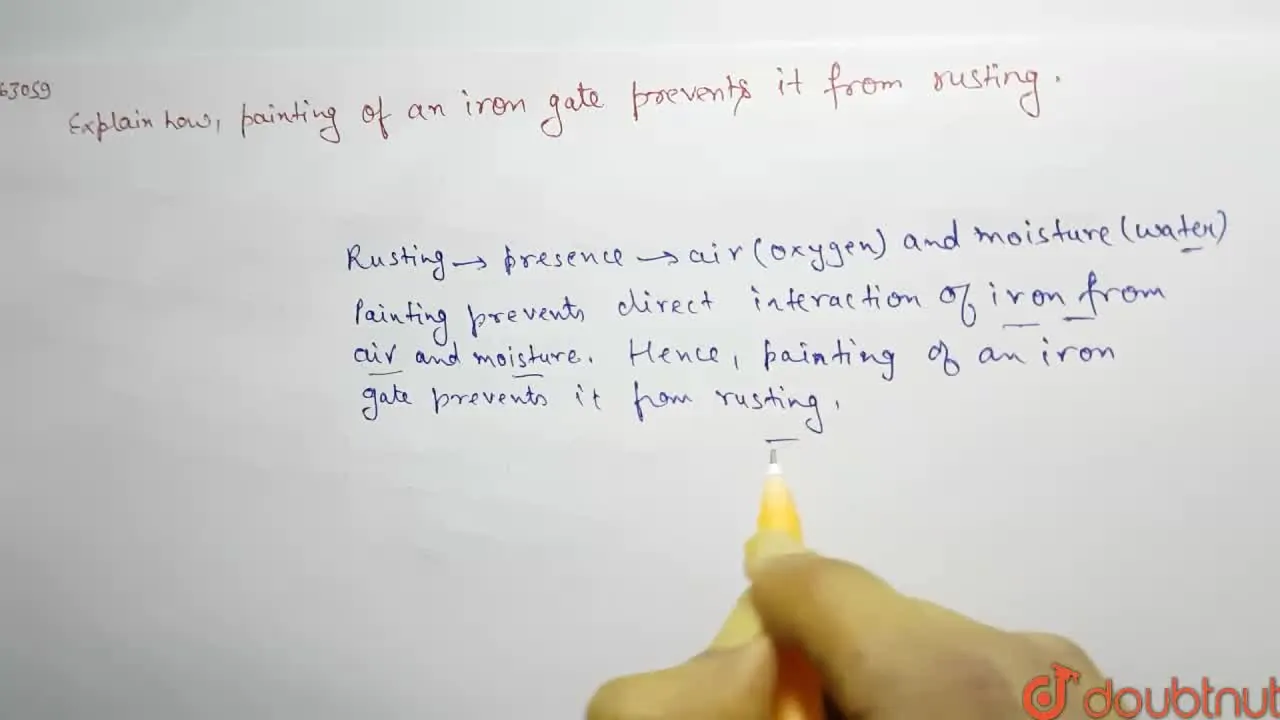 63059
Explain how, painting of an iron gate prevents it from rusting.
Rusting → presence → air (oxygen) and moisture (water)
Painting prevents direct interaction of iron from
air and moisture. Hence, painting of an iron
gate prevents it from rusting.
doubtnut